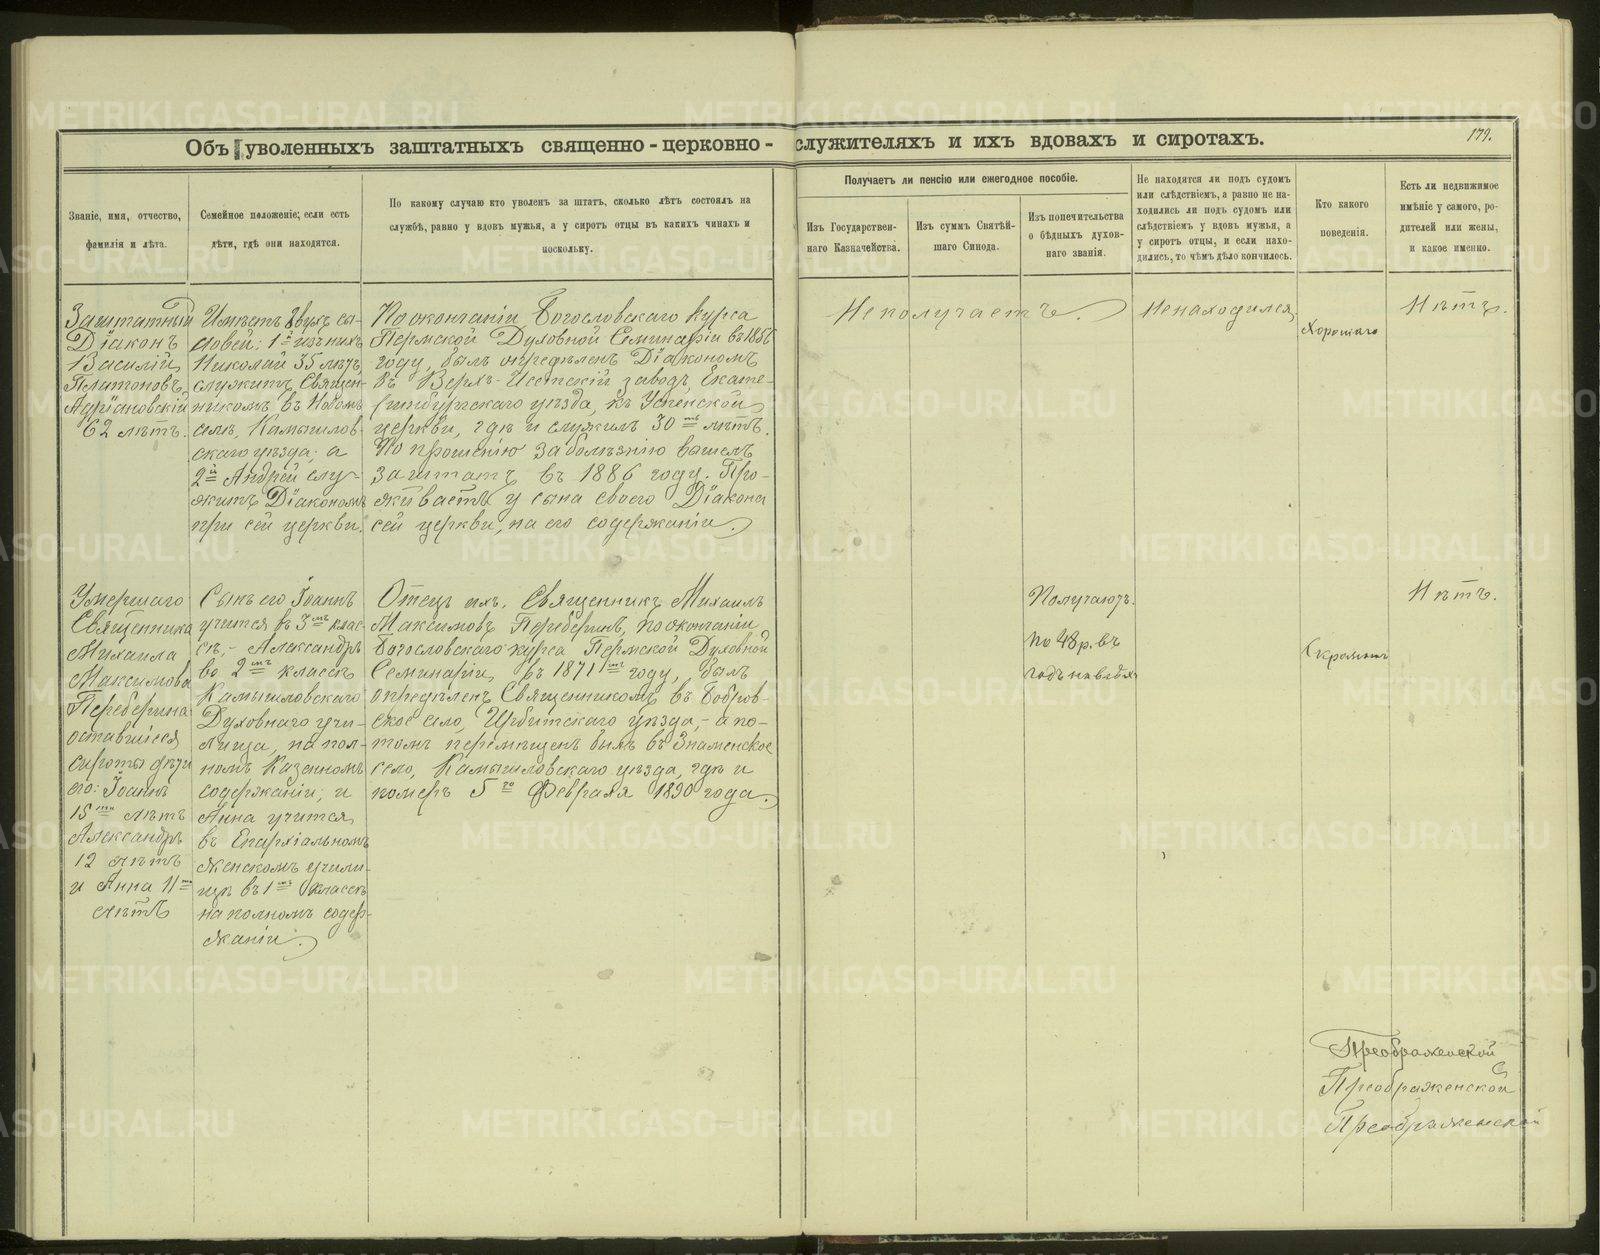 179.
Объ уволенныхъ заштатныхъ священно-церковно-служителяхъ и ихъ вдовахъ и сиротахъ.
Званіе, имя, отчество,
фамилія и лѣта.
Семейное положеніе; если есть
дѣти, гдѣ они находятся.
По какому случаю кто уволенъ за штатъ, сколько лѣтъ состоялъ на
службѣ, равно у вдовъ мужья, а у сиротъ отцы въ какихъ чинахъ и
поскольку.
Получаетъ ли пенсію или ежегодное пособіе.
Изъ Государствен-
наго Казначейства.
Изъ суммъ Святѣй-
шаго Синода.
Изъ попечительства
о бѣдныхъ духов-
наго званія.
Не находятся ли подъ судомъ
или слѣдствіемъ, а равно не на-
ходились ли подъ судомъ или
слѣдствіемъ у вдовъ мужья, а
у сиротъ отцы, и если нахо-
дились, то чѣмъ дѣло кончилось.
Кто какого
поведенія.
Есть ли недвижимое
имѣніе у самого, ро-
дителей или жены,
и какое именно.
Заштатный
Діаконъ
Василій
Платоновъ
Адріановскій
62 лѣтъ.
Имѣетъ двухъ сы-
новей: 1й изъ нихъ
Николай 35 лѣтъ,
служитъ Священ-
никомъ въ Новомъ
селѣ, Камышлов-
скаго уѣзда; а
2й Андрей слу-
житъ Діакономъ
при сей церкви.
По окончаніи Богословскаго курса
Пермской Духовной Семинаріи въ 1856
году, былъ опредѣленъ Діакономъ
въ Верхъ-Исетскій заводъ, Екате-
ринбургскаго уѣзда, къ Успенской
церкви, гдѣ и служилъ 30ть лѣтъ.
По прошенію за болѣзнію вышелъ
заштатъ въ 1886 году. Про-
живаетъ у сына своего Діакона
сей церкви, на его содержаніи.
Не получаетъ.
Не находился
Хорошаго
Нѣтъ.
Умершаго
Священника
Михаила
Максимова
Переберина
оставшіеся
сироты дѣти
его: Іоаннъ
15ти лѣтъ
Александръ
12 лѣтъ
и Анна 11ти
лѣтъ
Сынъ его Іоаннъ
учится въ 3мъ клас-
сѣ, - Александръ
во 2мъ классѣ
Камышловскаго
Духовнаго учи-
лища, на пол-
номъ Казенномъ
содержаніи; и
Анна учится
въ Епархіальномъ
женскомъ учили-
щѣ въ 1мъ классѣ
на полномъ содер-
жаніи.
Отецъ ихъ, Священникъ Михаилъ
Максимовъ Переберинъ, по окончаніи
Богословскаго курса Пермской Духовной
Семинаріи, въ 1871мъ году, былъ
опредѣленъ Священникомъ въ Бобров-
ское село, Ирбитскаго уѣзда, - а по-
томъ перемѣщенъ былъ въ Знаменское
село, Камышловскаго уѣзда, гдѣ и
померъ 5го Февраля 1890 года.
Получаютъ
по 48 р. въ
годъ
Скромны
Нѣтъ.
Преображенской
Преображенской
Преображенской
METRIKI.GASO-URAL.RU